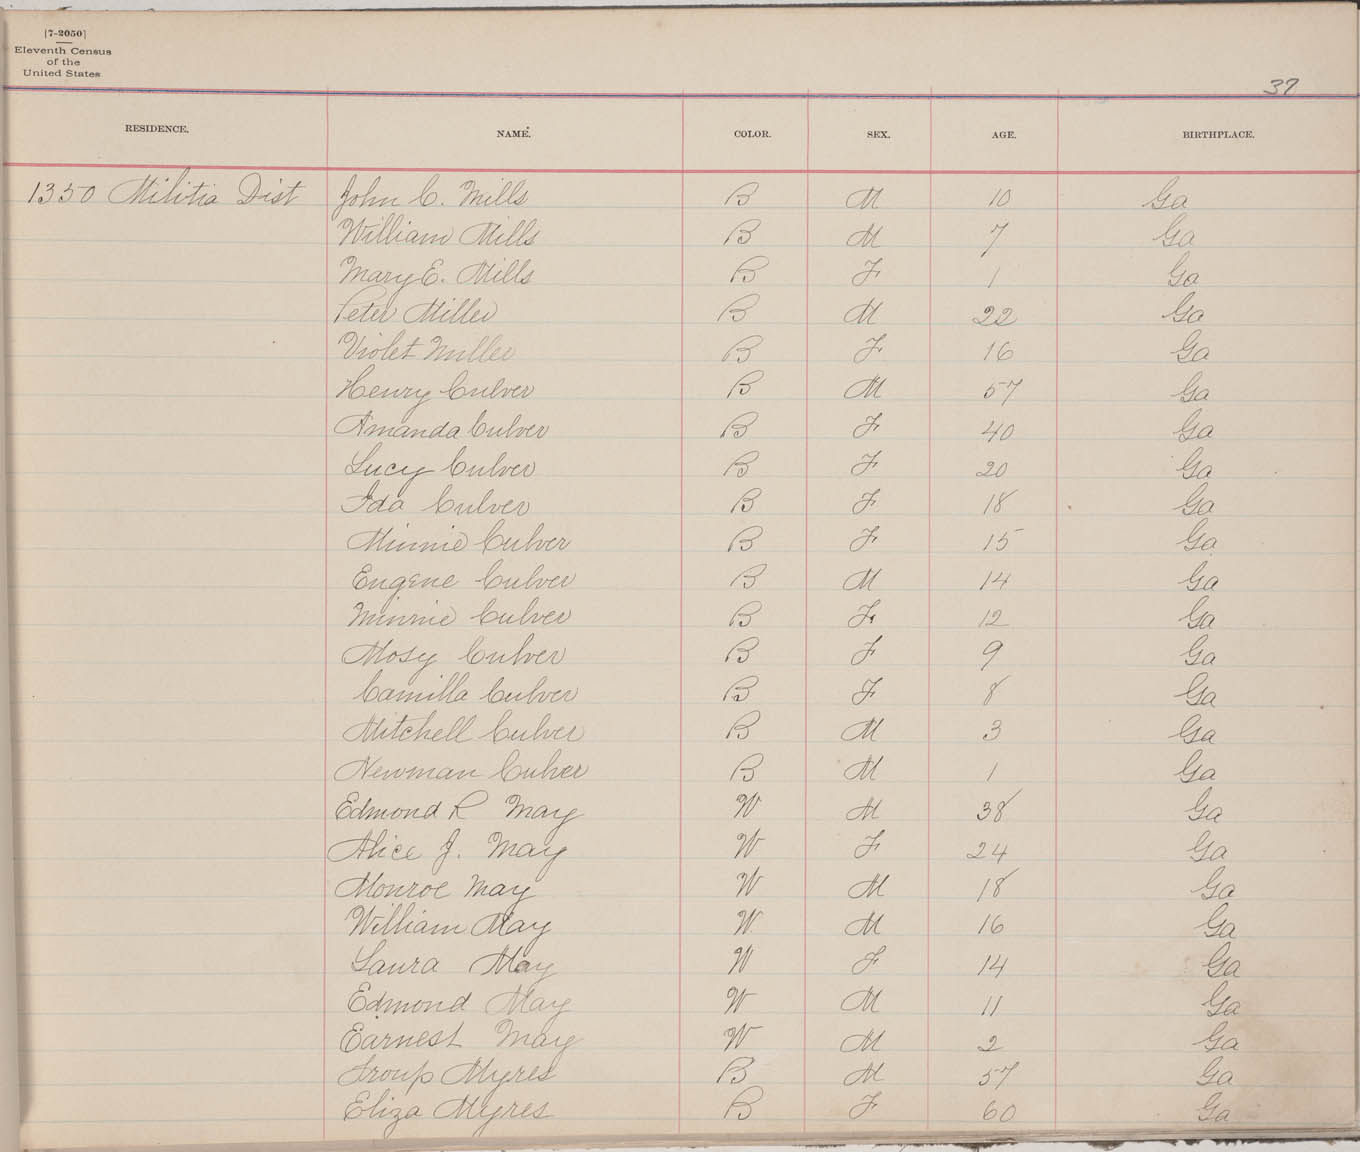 [7-2050]
Eleventh Census
of the
United States
37
RESIDENCE. NAME. COLOR. SEX. AGE. BIRTHPLACE.
1350 Militia Dist John C. Mills B M 10 Ga
William Mills B M 7 Ga
Mary E. Mills B F 1 Ga
Peter Miller B M 22 Ga
Violet Miller B F 16 Ga
Henry Culver B M 57 Ga
Amanda Culver B F 40 Ga
Lucy Culver B F 20 Ga
Ida Culver B F 18 Ga
Minnie Culver B F 15 Ga
Eugene Culver B M 14 Ga
Minnie Culver B F 12 Ga
Mosy Culver B F 9 Ga
Camilla Culver B F 8 Ga
Mitchell Culver B M 3 Ga
Newman Culver B M 1 Ga
Edmond R May W M 38 Ga
Alice J. May W F 24 Ga
Monroe May W M 18 Ga
William May W M 16 Ga
Laura May W F 14 Ga
Edmond May W M 11 Ga
Earnest May W M 2 Ga
Troup Myres B M 57 Ga
Eliza Myres B F 60 Ga